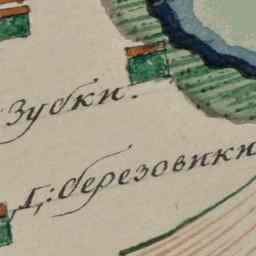 Зубки.
Д: березовики